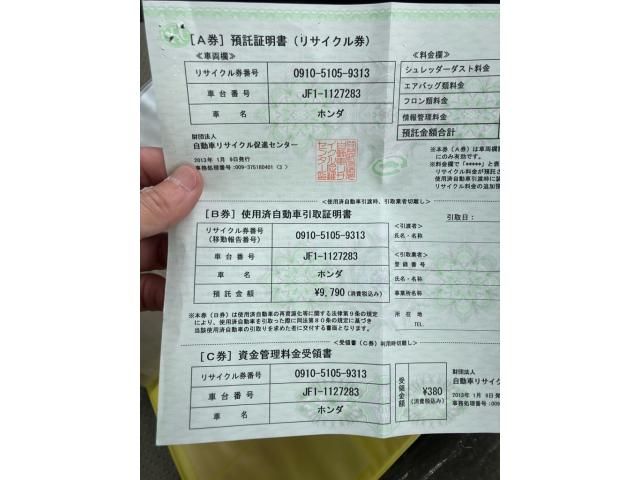 [A券] 預託証明書(リサイクル券)
≪車両欄≫
リサイクル券番号 0910-5105-9313
車台番号 JF1-1127283
車名 ホンダ
≪料金欄≫
シュレッダーダスト料金
エアバッグ類料金
フロン類料金
情報管理料金
預託金額合計
財団法人
自動車リサイクル促進センター
2013年 1月 9日発行
事務処理番号:009-375180401 (3)
※本券(A券)は車両欄
にのみ有効です。
※料金欄で「*****」と表
リサイクル料金が預託さ
使用済自動車引渡時に装
リサイクル料金の追加預
<使用済自動車引渡時、引取業者切離し>
[B券] 使用済自動車引取証明書
引取日:
リサイクル券番号
(移動報告番号) 0910-5105-9313
車台番号 JF1-1127283
車名 ホンダ
預託金額 ¥9,790 (消費税込み)
<引渡者>
氏名・名称
<引取業者>
登録番号
氏名・名称
事業所名称
所在地
TEL.
※本券(B券)は使用済自動車の再資源化等に関する法律第9条の規定
により、使用済自動車を引取った際に同法第80条の規定に基づき
当該使用済自動車の引取りを求めた者に交付する書面となります。
<受領書(C券)利用時切離し>
[C券] 資金管理料金受領書
リサイクル券番号 0910-5105-9313
車台番号 JF1-1127283
車名 ホンダ
受領金額 ¥380
(消費税込み)
財団法人
自動車リサイク
2013年 1月 9日発
事務処理番号:009